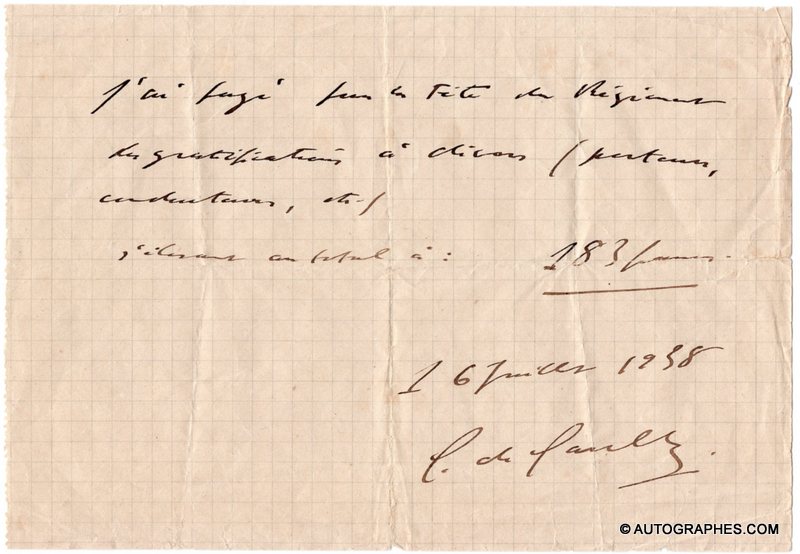 J'ai payé pour la Fête du Régiment
des gratifications à divers (porteurs,
conducteurs, etc.)
s'élevant au total à : 183 francs.
16 Juillet 1938
C. de Gaulle.
© AUTOGRAPHES.COM